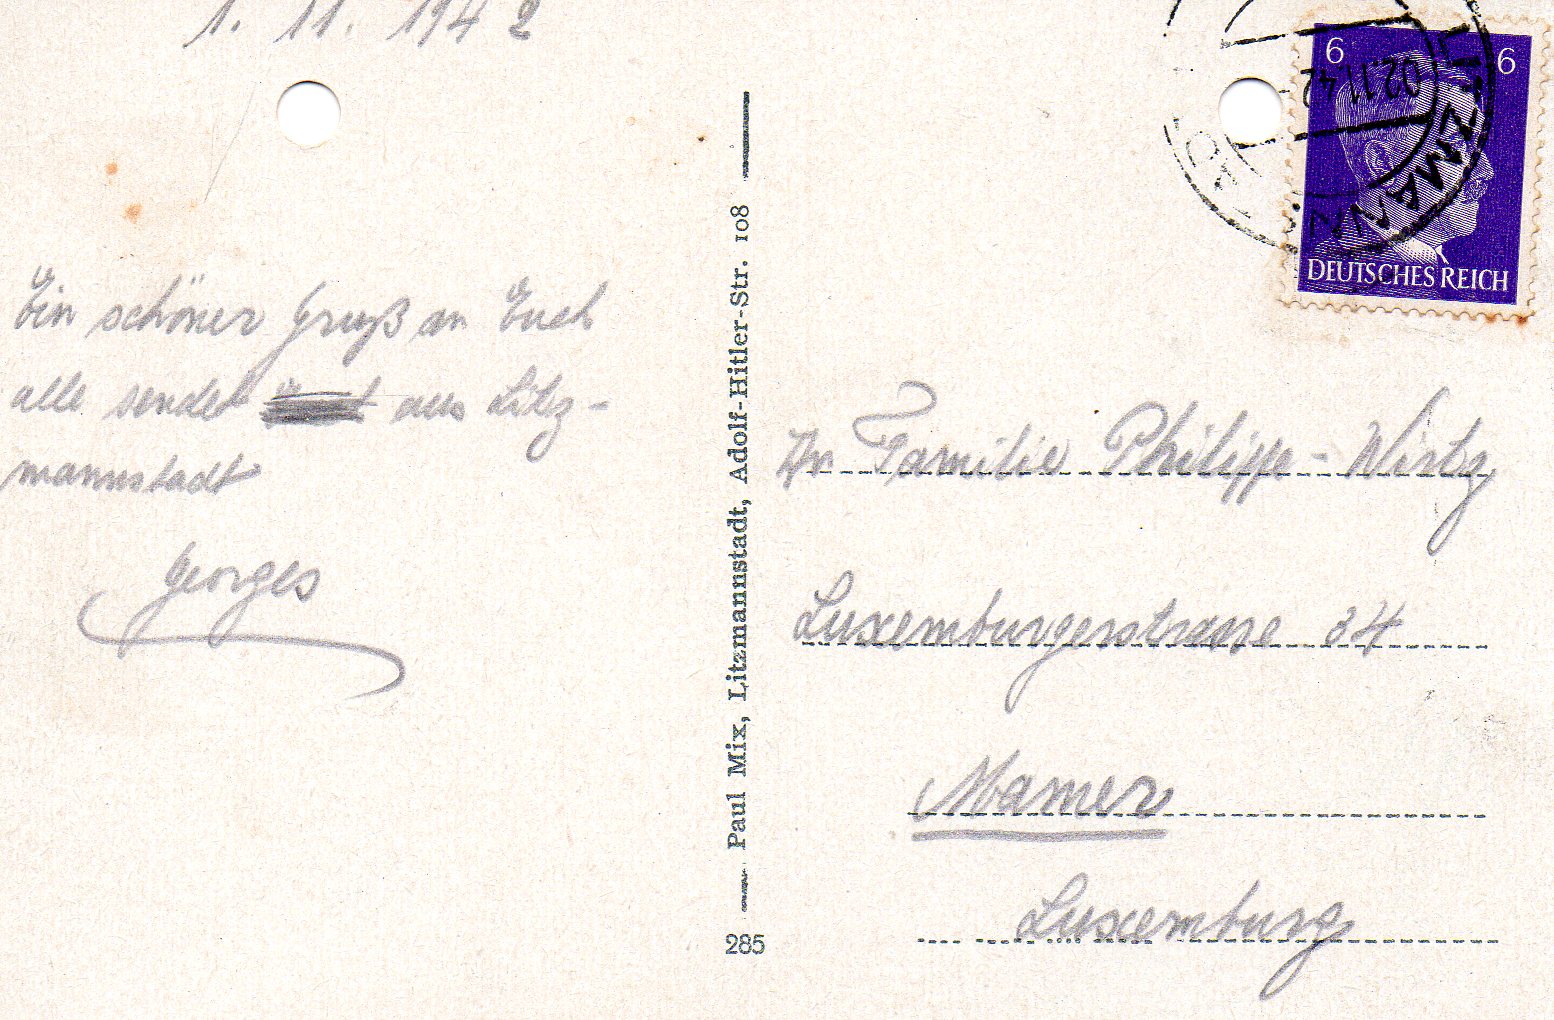 1. 11. 1942
Ein schöner Gruß an Euch
alle sendet aus Litz-
mannstadt
Georges
Paul Mix, Litzmannstadt, Adolf-Hitler-Str. 108
285
6 6
DEUTSCHES REICH
LITZMANNSTADT
02.11.42
An Familie Philippe-Wirtz
Luxemburgerstrasse 34
Mamer
Luxemburg